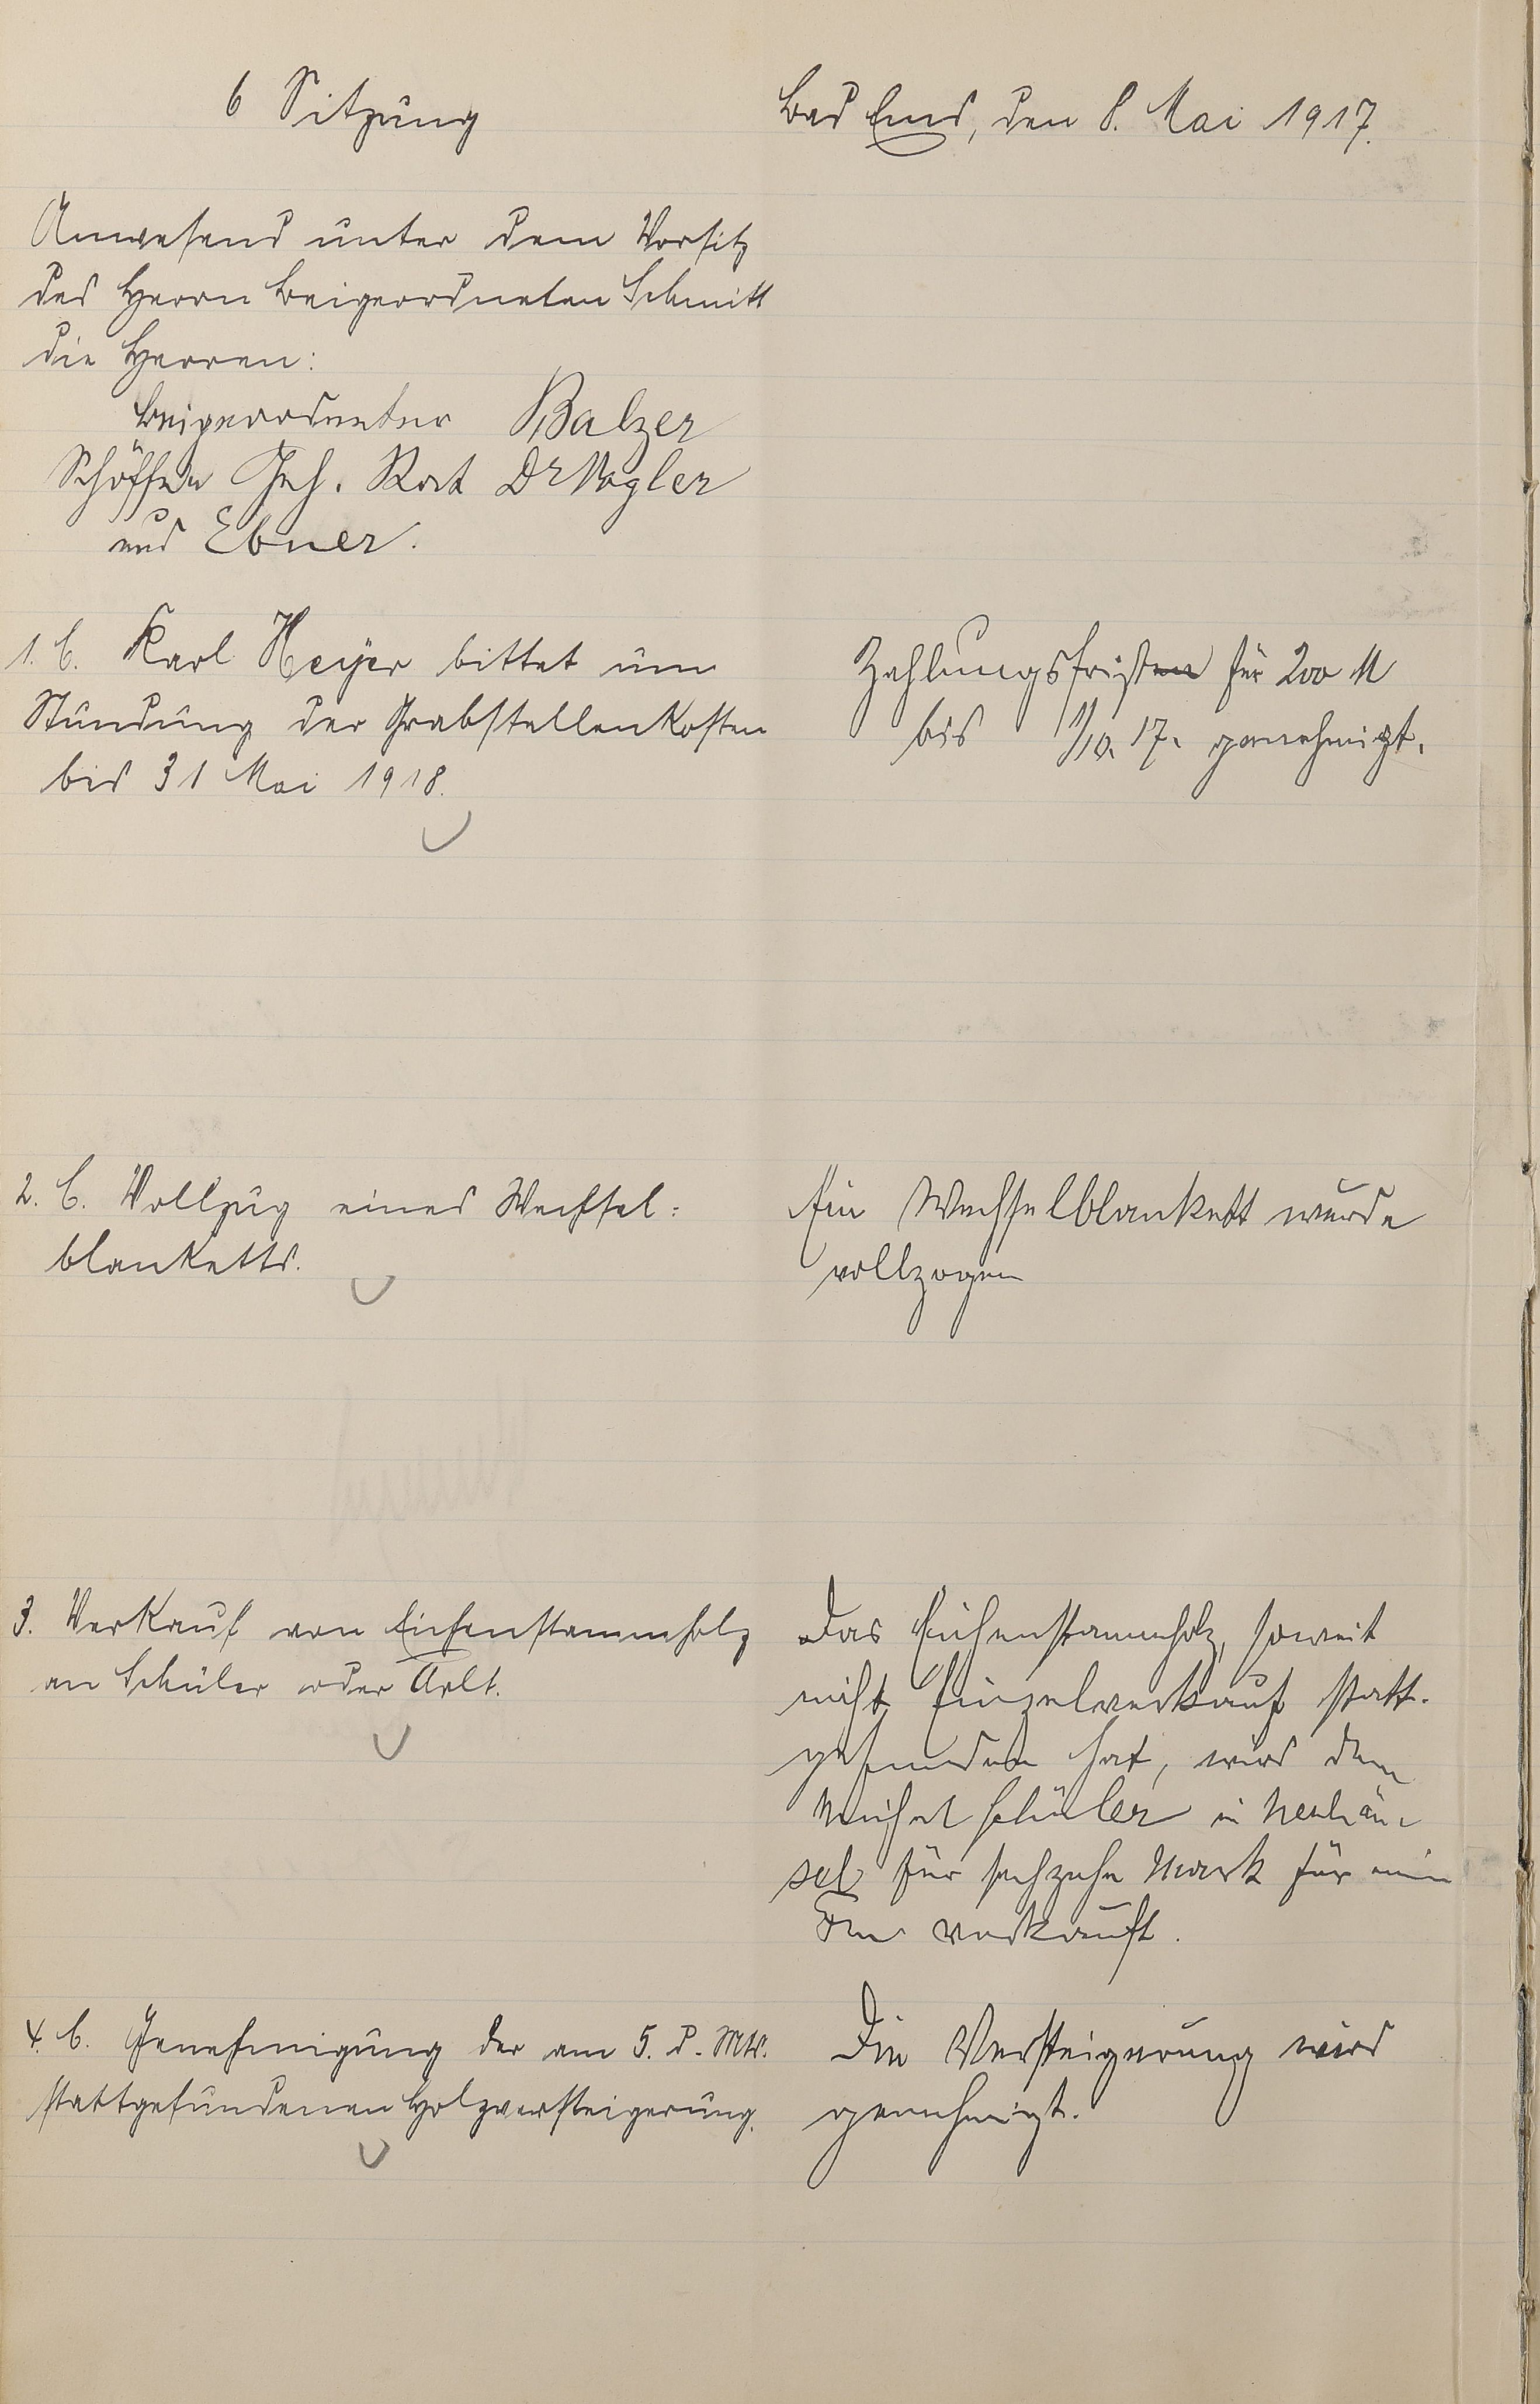 6 Sitzung
Bad Ems, den 8. Mai 1917.
Anwesend unter dem Vorsitz
des Herrn Beigeordneten Schmitt
die Herren:
Beigeordneter Balzer
Schöffen Geh. Rat Dr Vogler
und Ebner.
1. C. Karl Heyer bittet um
Stundung der Grabstellenkosten
bis 31 Mai 1918.
Zahlungsfristen für 200 M
bis 1/10. 17. genehmigt.
2. C. Vollzug eines Wechsel=
blanketts.
Ein Wechselblankett wurde
vollzogen
3. Verkauf von Eichenstammholz
an Schüler oder Arlt.
Das Eichenstammholz, soweit
nicht Einzelverkauf statt-
gefunden hat, wird dem
Michel Schüler in Neuhäu-
sel für sechzehn Mark für ein
Fm verkauft.
4. C. Genehmigung der am 5. d. Mts.
stattgefundenen Holzversteigerung.
Die Versteigerung wird
genehmigt.